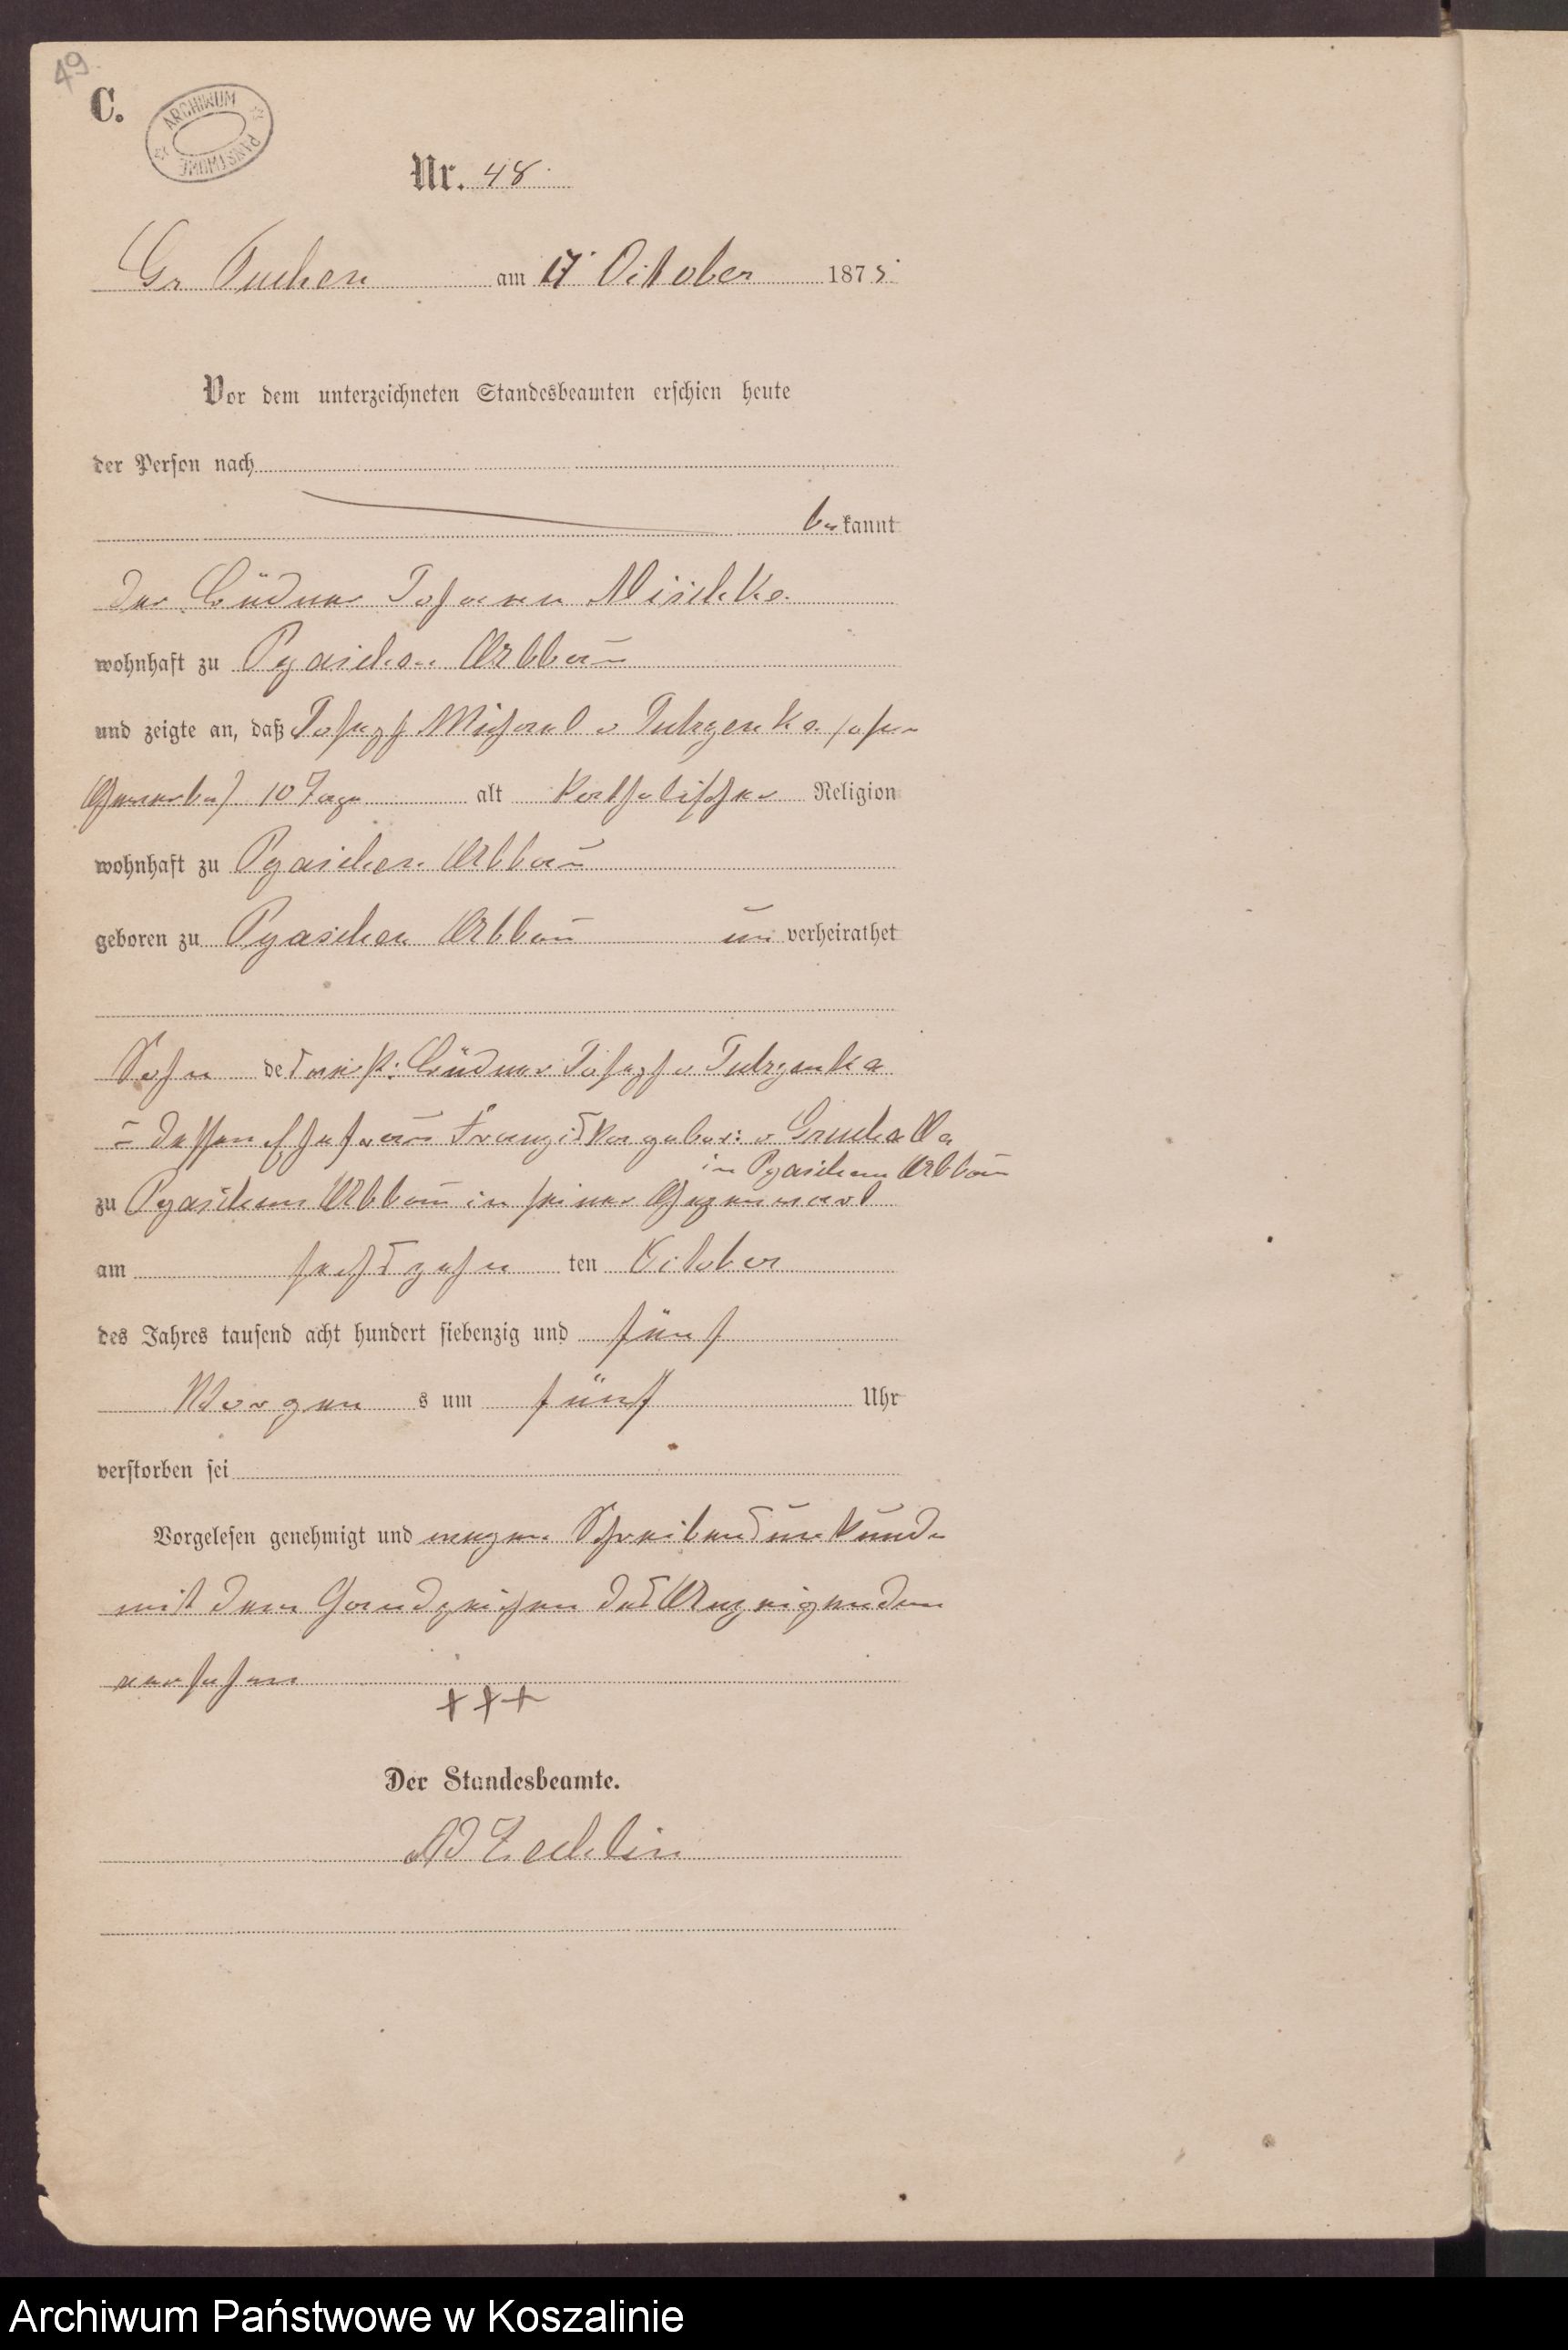 49.
C.
ARCHIWUM PAŃSTWOWE
Nr. 48.
Gr Tuchen am 17 October 1875.
Vor dem unterzeichneten Standesbeamten erschien heute
der Person nach
bekannt
der Büdner Johann Mischke
wohnhaft zu Pyaschen Abbau
und zeigte an, daß Joseph Michael v Jutrzenka (ohne
Gewerbe) 10 Tage alt katholischer Religion
wohnhaft zu Pyaschen Abbau
geboren zu Pyaschen Abbau un verheirathet
Sohn des Büdner Joseph v Jutrzenka
u dessen Ehefrau Franziska gebor: v Gruchalla
in Pyaschen Abbau
zu Pyaschen Abbau in seiner Gegenwart
am sechszehn ten October
des Jahres tausend acht hundert siebenzig und fünf
Morgen s um fünf Uhr
verstorben sei
Vorgelesen genehmigt und wegen Schreibensunkunde
mit dem Handzeichen des Anzeigenden
versehen
+++
Der Standesbeamte.
Zechlin
Archiwum Państwowe w Koszalinie